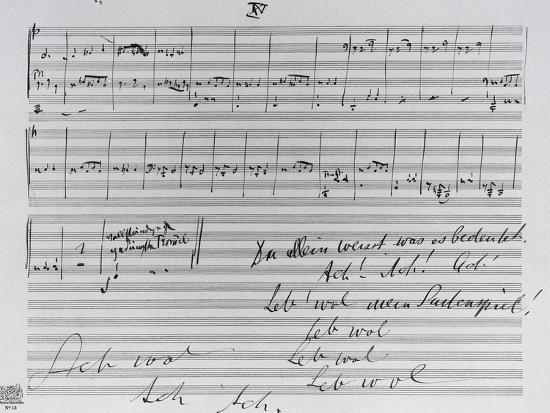 IV
vollständig
gedämpfte Trommel
Du allein weisst was es bedeutet.
Ach! Ach! Ach!
Leb' wol mein Saitenspiel!
Leb wol
Leb wol
Leb wol
Ach wol
Ach Ach.
Nº 13